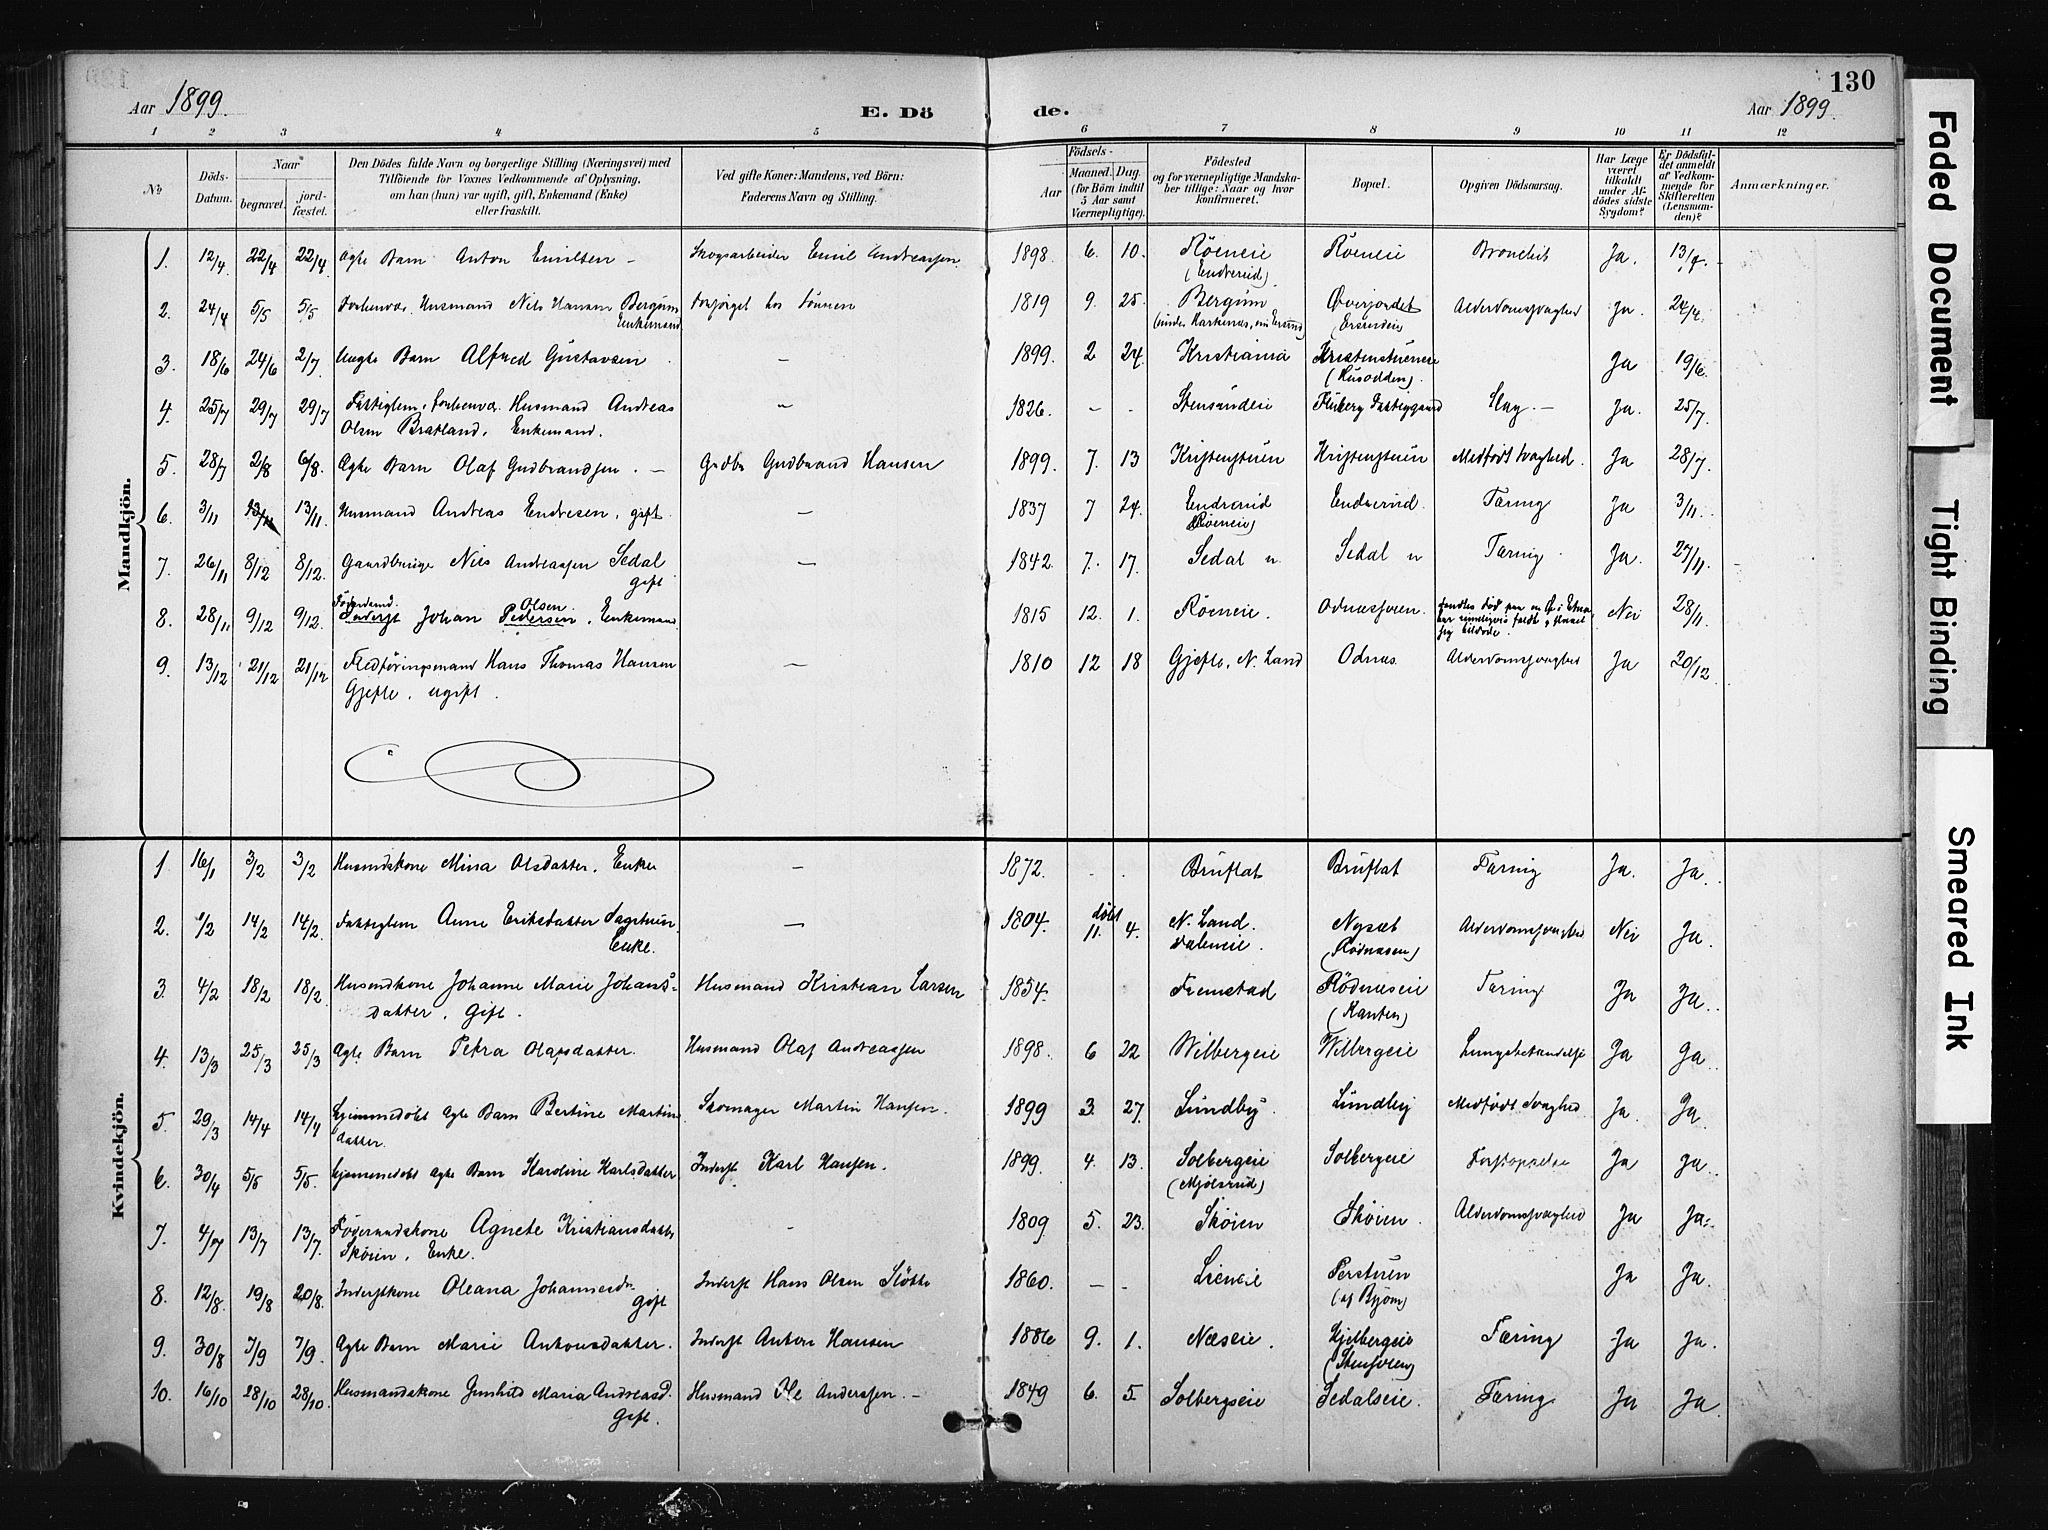 130
Aar 1899.
E. Döde.
Aar 1899.
1 2 3 4 5 6 7 8 9 10 11 12
No
Döds-Datum.
Naar
begravet.
jord-fæstet.
Den Dödes fulde Navn og borgerlige Stilling (Næringsvei) med
Tilföiende for Voxnes Vedkommende af Oplysning.
om han (hun) var ugift, gift, Enkemand (Enke)
eller fraskilt.
Ved gifte Koner: Mandens, ved Börn:
Faderens Navn og Stilling.
Födsels-
Aar
Maaned. Dag
(for Börn indtil
5 Aar samt
Værnepligtige).
Födested
og for værnepligtige Mandska-
ber tillige: Naar og hvor
konfirmeret.
Bopæl.
Opgiven Dödsaarsag.
Har Læge
været
tilkaldt
under Af-
dödes sidste
Sygdom?
Er Dödsfal-
det anmeldt
af Vedkom-
mende for
Skifteretten
(Lensman-
den)?
Anmærkninger.
Mandkjön.
1. 12/4 22/4 22/4 Ægte Barn Anton Emilsen – Skogsarbeider Emil Andreassen 1898 6. 10. Röeneie (Endrerud) Röeneie Bronchit Ja. 13/4.
2. 24/4 5/5 5/5 Forhenvær. Husmand Nils Hansen Bergum Enkemand Forsörget hos Sönnen 1819 9. 25. Bergum Øverjordet (Ersundeie) Alderdomssvaghed Ja. 24/4.
3. 18/6 24/6 2/7. Uægte Barn Alfred Gustavsen – 1899. 2 24. Kristiania Kristenstueneie (Husodden). Ja 19/6.
4. 25/7 29/7 29/7 Fattiglem, forhenv. Husmand Andreas
Olsen Bratland, Enkemand. – 1826. – – Stensundeie Fluberg Fattiggaard Slag. – Ja. 25/7.
5. 28/7 2/8 6/8. Ægte Barn Olaf Gudbrandsen. – Grdbr Gudbrand Hansen 1899. 7. 13 Kristenstuen Kristenstuen Medfödt Svaghed. Ja 28/7.
6. 3/11 13/11 13/11. Husmand Andreas Endresen, gift. – 1837 7 24. Endrerud (Röeneie) Endrerud Tæring Ja 3/11.
7. 26/11 8/12 8/12. Gaardbruger Nils Andreassen Sedal
gift – 1842. 7. 17. Sedal n Sedal n Tæring. Ja. 27/11.
8. 28/11 9/12 9/12. Föderaad. Inderst Johan Pedersen Olsen. Enkemand. 1815 12. 1. Röeneie. Odnæsveien. fandtes död paa en Ø i Etna, Nei 28/11.
9. 13/12 21/12 21/12 Fledföringsmand Hans Thomas Hansen
Gjefle, ugift. – 1810 12 18 Gjefle, N. Land Odnæs. Alderdomssvaghed Ja 20/12.
Kvindekjön.
1. 16/1 3/2 3/2 Husmdskone Mina Olsdatter, Enke – 1872. - - Bruflat Bruflat Tæring Ja. Ja.
2. 1/2 14/2 14/2. Fattiglem Anne Eriksdatter Dagstuen,
Enke. – 1804. döbt 11. 4. N. Land. Dæleneie. Nysæt (Rödnæsen) Alderdomssvaghed Nei Ja.
3. 4/2 18/2 18/2. Husmdkone Johanne Marie Johans-
datter, Gift. Husmand Kristian Larsen 1854. Fremstad Rödnæseie (Kanten) Tæring Ja Ja.
4. 13/3 25/3 25/3 Ægte Barn Petra Olafsdatter. Husmand Olaf Andreassen 1898. 6 22 Wilbergeie Wilbergeie Lungebetændelse Ja Ja.
5. 29/3 14/4 14/4 Hjemmedöbt ægte Barn Bertine Martins
datter. Skomager Martin Hansen. 1899 3. 27. Lundby. Lundby Medfödt Svaghed. Ja. Ja.
6. 30/4 5/5 5/5. Hjemmedöbt ægte Barn Karoline Karlsdatter Inderst Karl Hansen. 1899. 4. 13. Solbergeie (Mjölsrud) Solbergeie Forstoppelse Ja Ja.
7. 4/7 13/7 13/7. Föderaadskone Agnete Kristiansdatter
Sköien, Enke. – 1809. 5. 23. Sköien Sköien. Alderdomssvaghed Ja Ja.
8. 12/8. 19/8 20/8. Inderstkone Oleana Johannesdr
Gift Inderst Hans Olsen Slötte 1860. – – Lieneie Perstuen (af Bjöm) Ja Ja.
9. 30/8 7/9 7/9. Ægte Barn Marie Antonsdatter. Inderst Anton Hansen 1886 9. 1. Næseie. Hjelbergeie (Stensveen) Tæring Ja Ja.
10. 16/10 28/10 28/10. Husmandskone Gunhild Maria Andreasd.
Gift. Husmand Ole Anderssen. – 1849 6. 5. Solbergseie Sedalseie. Tæring Ja Ja.
Faded Document
Tight Binding
Smeared Ink